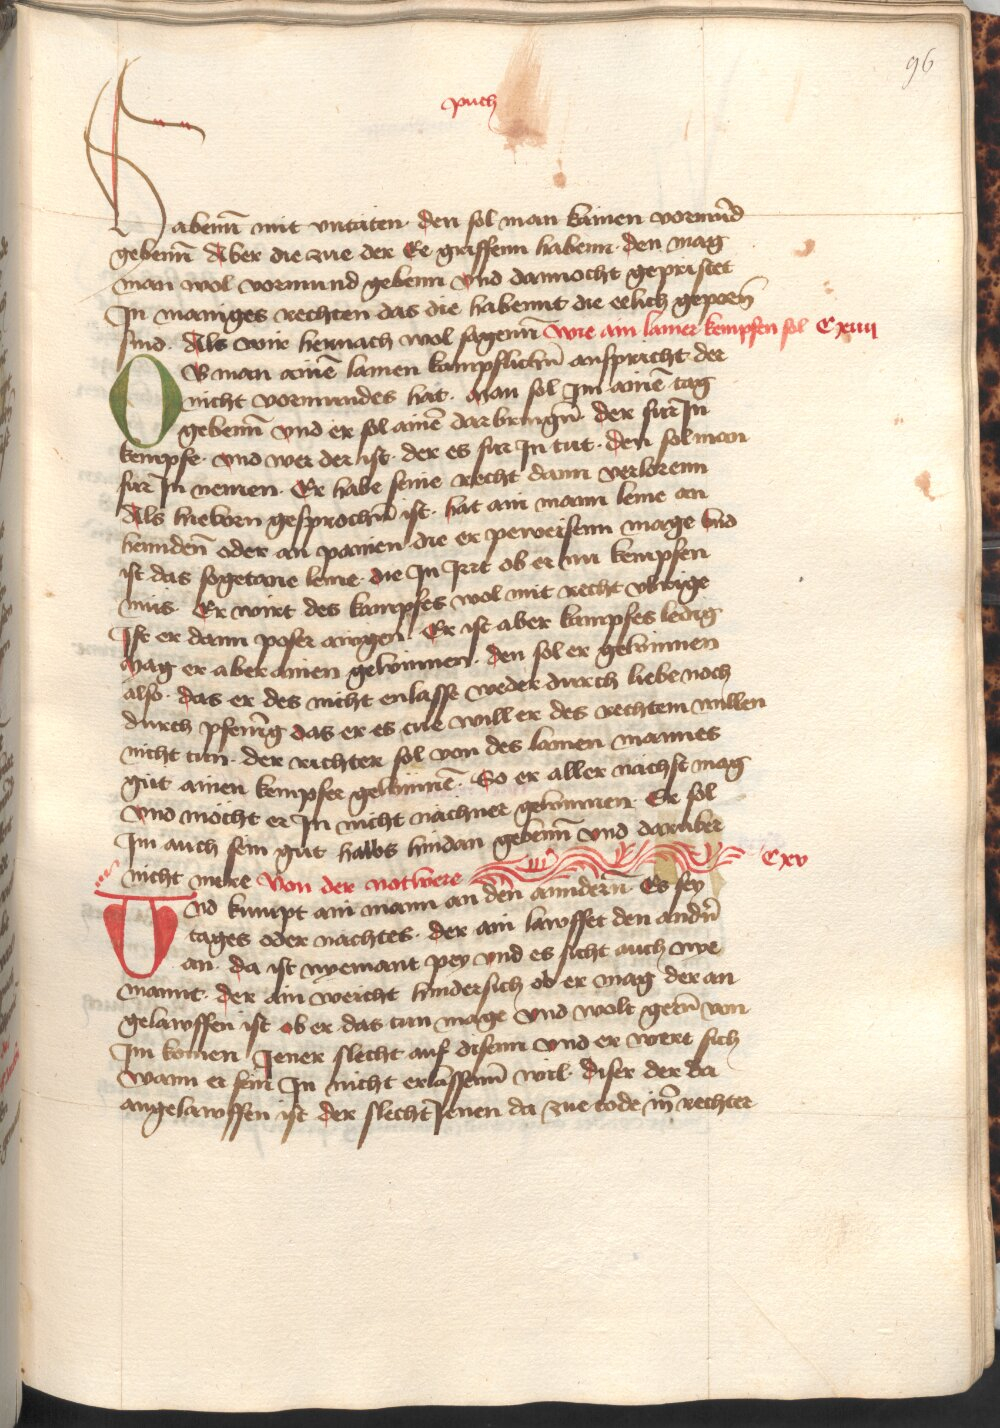 96
puch
Habenn̄ mit vntäten· den sol man kainen vormūd
gebenn̄ Aber die zue der Ee griffenn habenn· den mag
man wol vormund gebenn vnd dannocht gepristet
In maniges rechten das die habennt die eelich geporn̄
sind· Als wir hernach wol sagenn̄ Wie ain lamer kempfen sol Cxiiii
OB man ainē lamen kampflichn̄ anspricht der
nicht vormundes hat· Man sol Im ainē tag
gebenn̄ vnd er sol ainē dar bringn̄· der fur In
kempfe· vnd wer der ist· der es fur In tut· den sol man
fur In nemen· Er habe seine recht dann verlorenn
Als hieborn gesprochn̄ ist· hat ain mann leme an
hennden̄ oder an painen die er peweisenn mage vnd
ist das sogetane leme· die In Irrt ob er im kempfen
mus· Er wirt des kampfes wol mit recht vbrige
Ist er dann poser augen· Er ist aber kampfes ledig
Mag er aber ainen gewinnen· den sol er gewinnen
also· das er des nicht enlasse weder durch liebe noch
durch pfenīg das er es tue will er des rechtem willen
nicht tun· der richter sol von des lamen mannes
gut ainen kempfer gewinnē· So er aller nächst mag
vnd möcht er In nicht nächner gewinnen· Er sol
Im auch sein gut halbs hindan gebenn̄ vnd darüber
nicht mere Von der notwere Cxv
Vnd kumpt ain mann an den anndern̄ Es sey
tages oder nachtes· der ain lawffet den andn̄
an· da ist nyemant pey vnd es sicht auch nye
mannt· der ain weicht hindersich ob er mag der an
gelawffen ist ob er das tun mage vnd wolt gern̄ von
Im komen Jener slecht auf disenn vnd er wert sich
wann er sein In nicht erlassenn̄ wil· diser der da
angelawffen ist der slecht Jenen da zue tode in̄ rechter